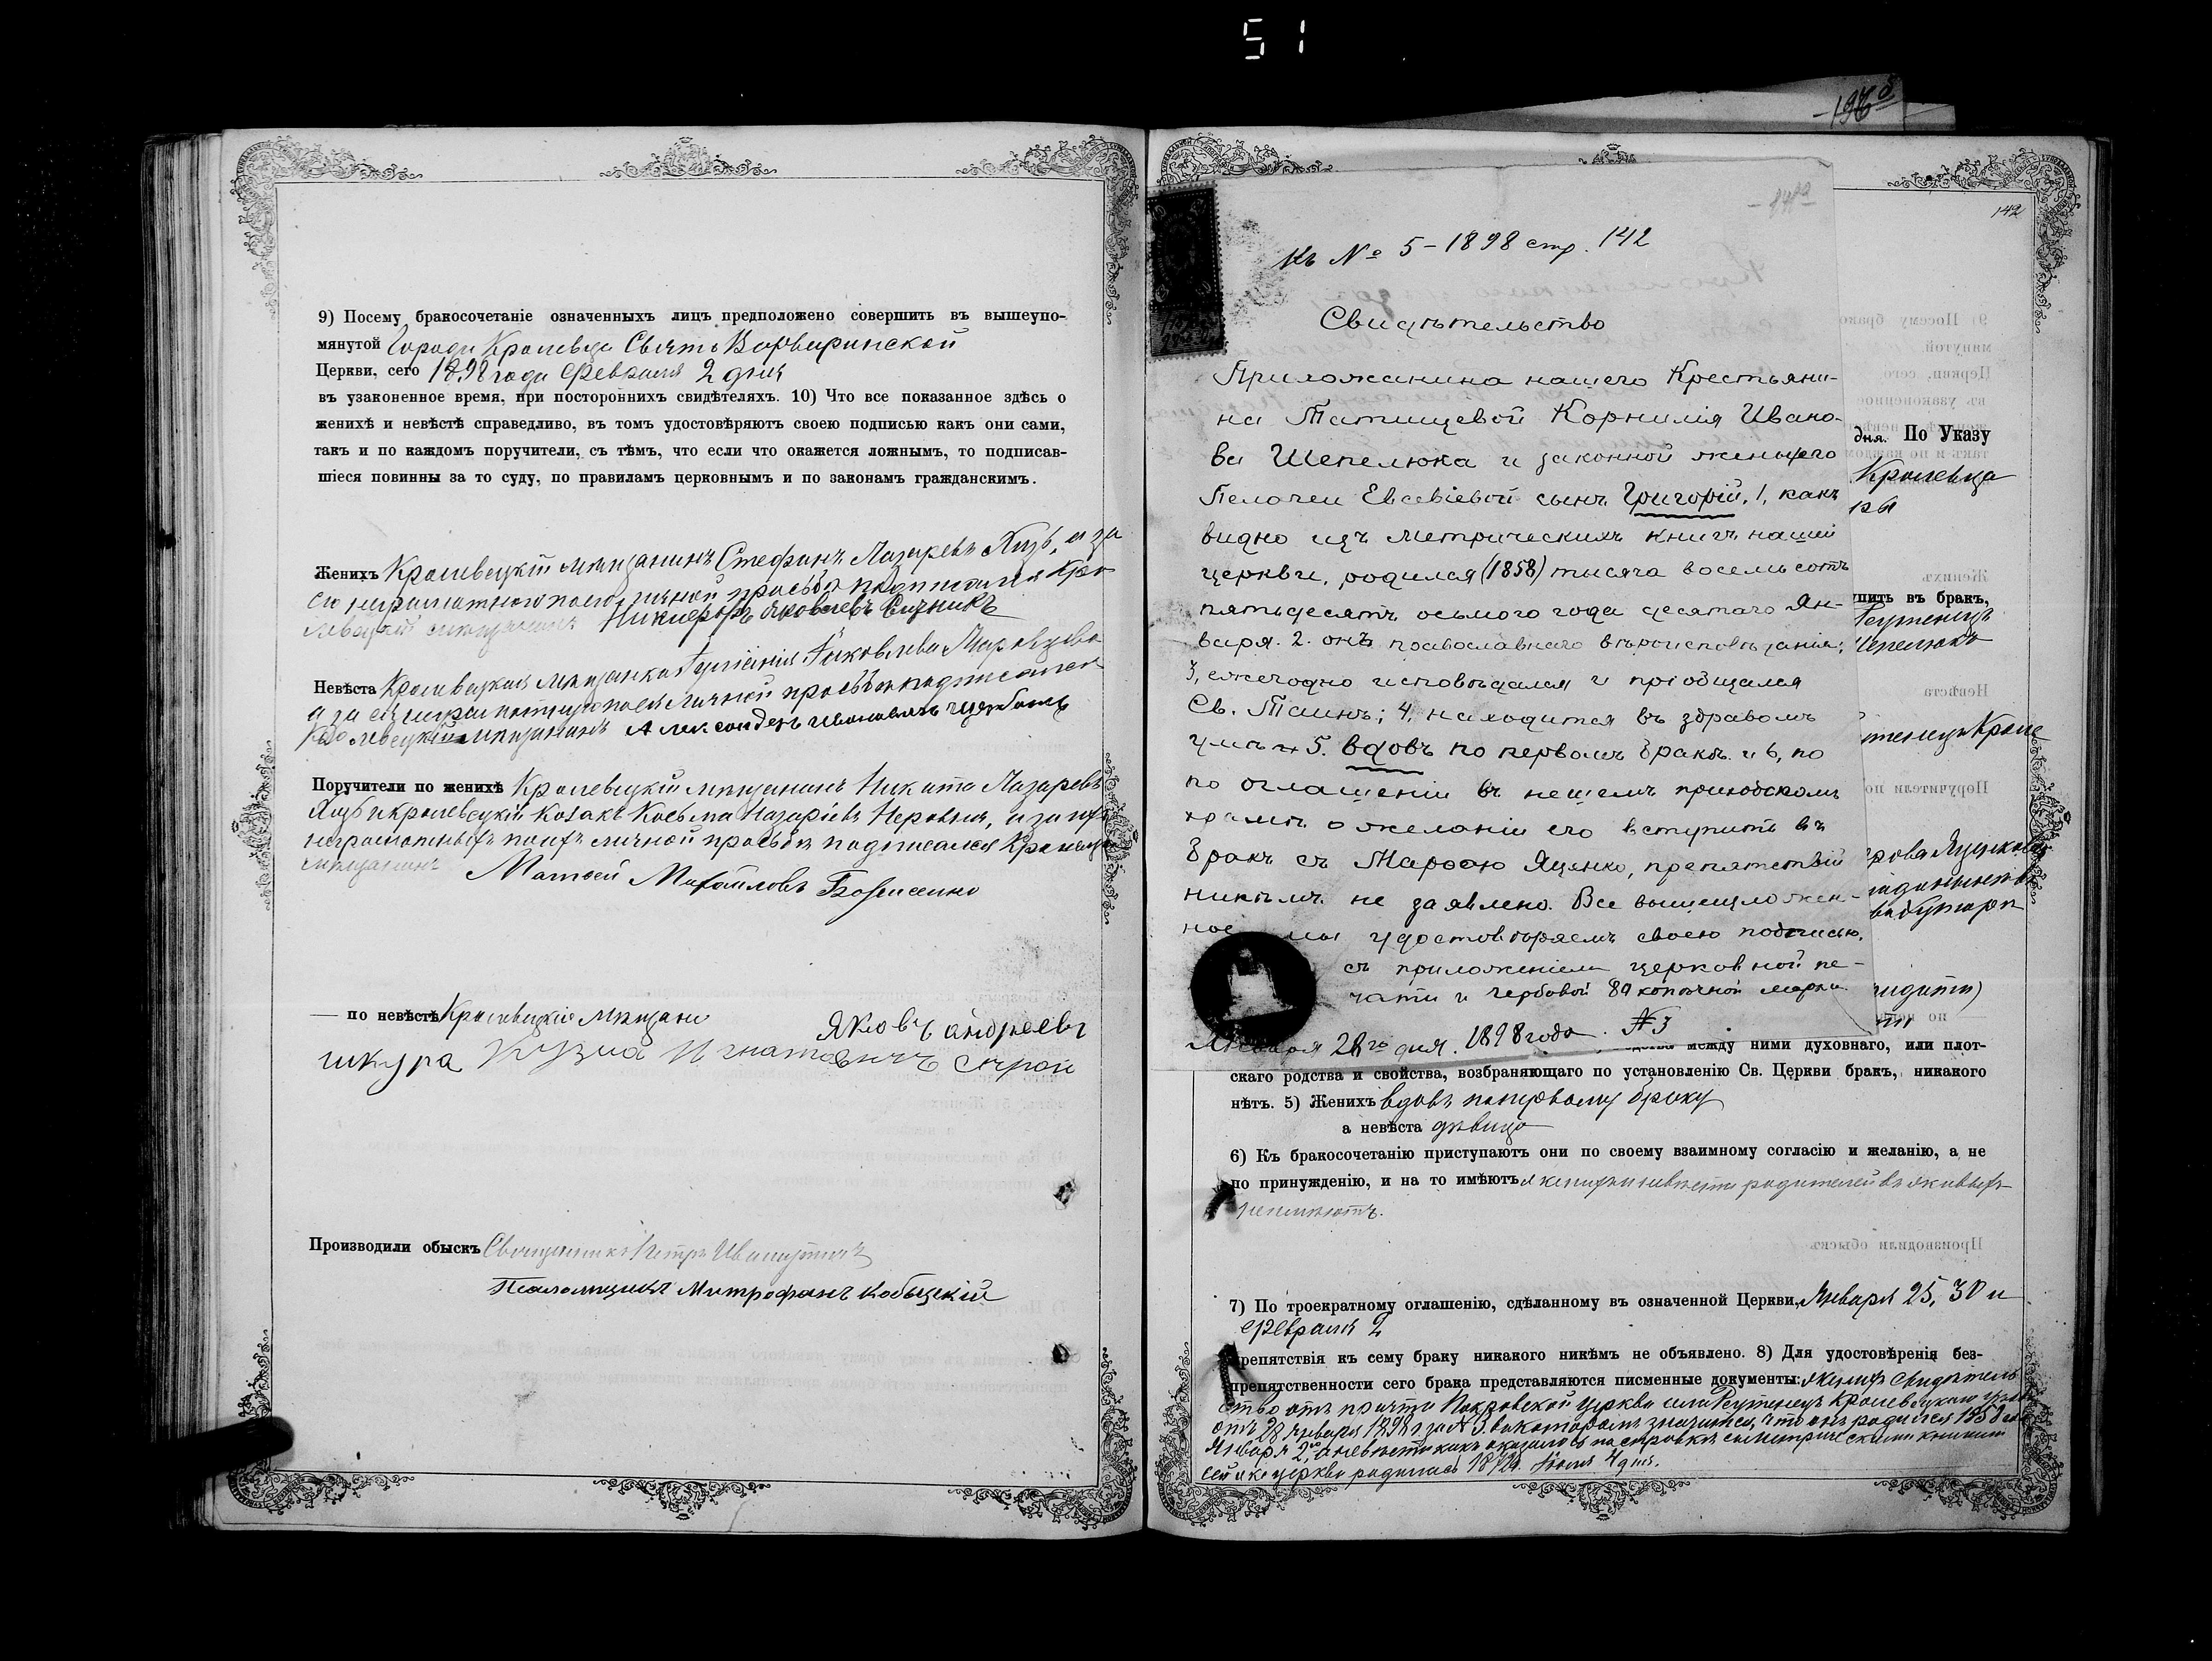 51
9) Посему бракосочетаніе означенныхъ лицъ предположено совершить въ вышеупо-
мянутой Города Кролевца Свято Варваринской
Церкви, сего 1898 года Февраля 2 дня
въ узаконенное время, при постороннихъ свидѣтеляхъ. 10) Что все показанное здѣсь о
женихѣ и невѣстѣ справедливо, въ томъ удостовѣряютъ своею подписью какъ они сами,
такъ и по каждомъ поручители, съ тѣмъ, что если что окажется ложнымъ, то подписав-
шіеся повинны за то суду, по правиламъ церковнымъ и по законамъ гражданскимъ.
Женихъ Кролевецкій мѣщанинъ Стефанъ Лазаревъ а за
его неграмотнаго по его личной просьбѣ подписался Кро
левецкій мѣщанинъ Никифоръ Яковлевъ
Невѣста Кролевецкая мѣщанка Яковлева
а за ея неграмотную по ея личной просьбѣ подписался
Кролевецкій мѣщанинъ Александеръ Ивановичъ
Поручители по женихѣ Кролевецкій мѣщанинъ Никита Лазаревъ
и кролевецкій козакъ Косьма Назаріевъ а за ихъ
неграмотныхъ по ихъ личной просьбѣ подписался
мѣщанинъ Матвей Михайловъ Борисенко
— по невѣстѣ Кролевецкіе мѣщане Яковъ андреевъ
шкура Кузма Игнатовичъ
Производили обыскъ Священникъ Петръ
Псаломщикъ Митрофанъ Кобыцкій
142
Къ № 5 – 1898 стр. 142
Свидѣтельство
Приложанина нашего Крестьяни-
на Татищевой Корнилія Ивано-
ва Шепелюка и законной жены его
Пелагеи Евсевіевой сынъ Григорій, 1, какъ
видно изъ метрическихъ книгъ нашей
церкви, родился (1858) тысяча восемьсотъ
пятьдесятъ осьмого года десятаго Ян-
варя. 2. онъ православнаго вѣроисповѣданія;
3, ежегодно исповѣдался и пріобщался
Св. Таинъ; 4, находится въ здравомъ
умѣ и 5. вдовъ по первомъ бракѣ. и 6, по
по оглашеніи въ нашемъ приходскомъ
храмѣ о желаніи его вступить въ
бракъ съ Марѳою Яценко, препятствій
никѣмъ не заявлено. Все вышеизложен-
ное мы удостовѣряемъ своею подписью,
съ приложеніемъ церковной пе-
чати и гербовой 80 копѣечной марки.
Января 28го дня. 1898 года. № 3
дня. По Указу
Кролевца
вступить въ бракъ,
Шепелюкъ
между ними духовнаго, или плот-
скаго родства и свойства, возбраняющаго по установленію Св. Церкви бракъ, никакого
нѣтъ. 5) Женихъ вдовъ по первому браку
а невѣста дѣвица
6) Къ бракосочетанію приступаютъ они по своему взаимному согласію и желанію, а не
по принужденію, и на то имѣютъ женихъ и невѣста родителей въ живыхъ
неимѣютъ.
7) По троекратному оглашенію, сдѣланному въ означенной Церкви, Января 25, 30 и
Февраля 2
препятствія къ сему браку никакого никѣмъ не объявлено. 8) Для удостовѣренія без-
препятственности сего брака представляются писменные документы: жених свидѣтель
ство отъ причта Покровской церкви села Реутенецъ Кролевецкаго уѣзда
отъ 28 января 1898 г за № 3. въ которомъ значится, что онъ родился 1858 года
Января 2го, а невѣста какъ оказалось по справкѣ съ метрическими книгами
сей же церкви родилась